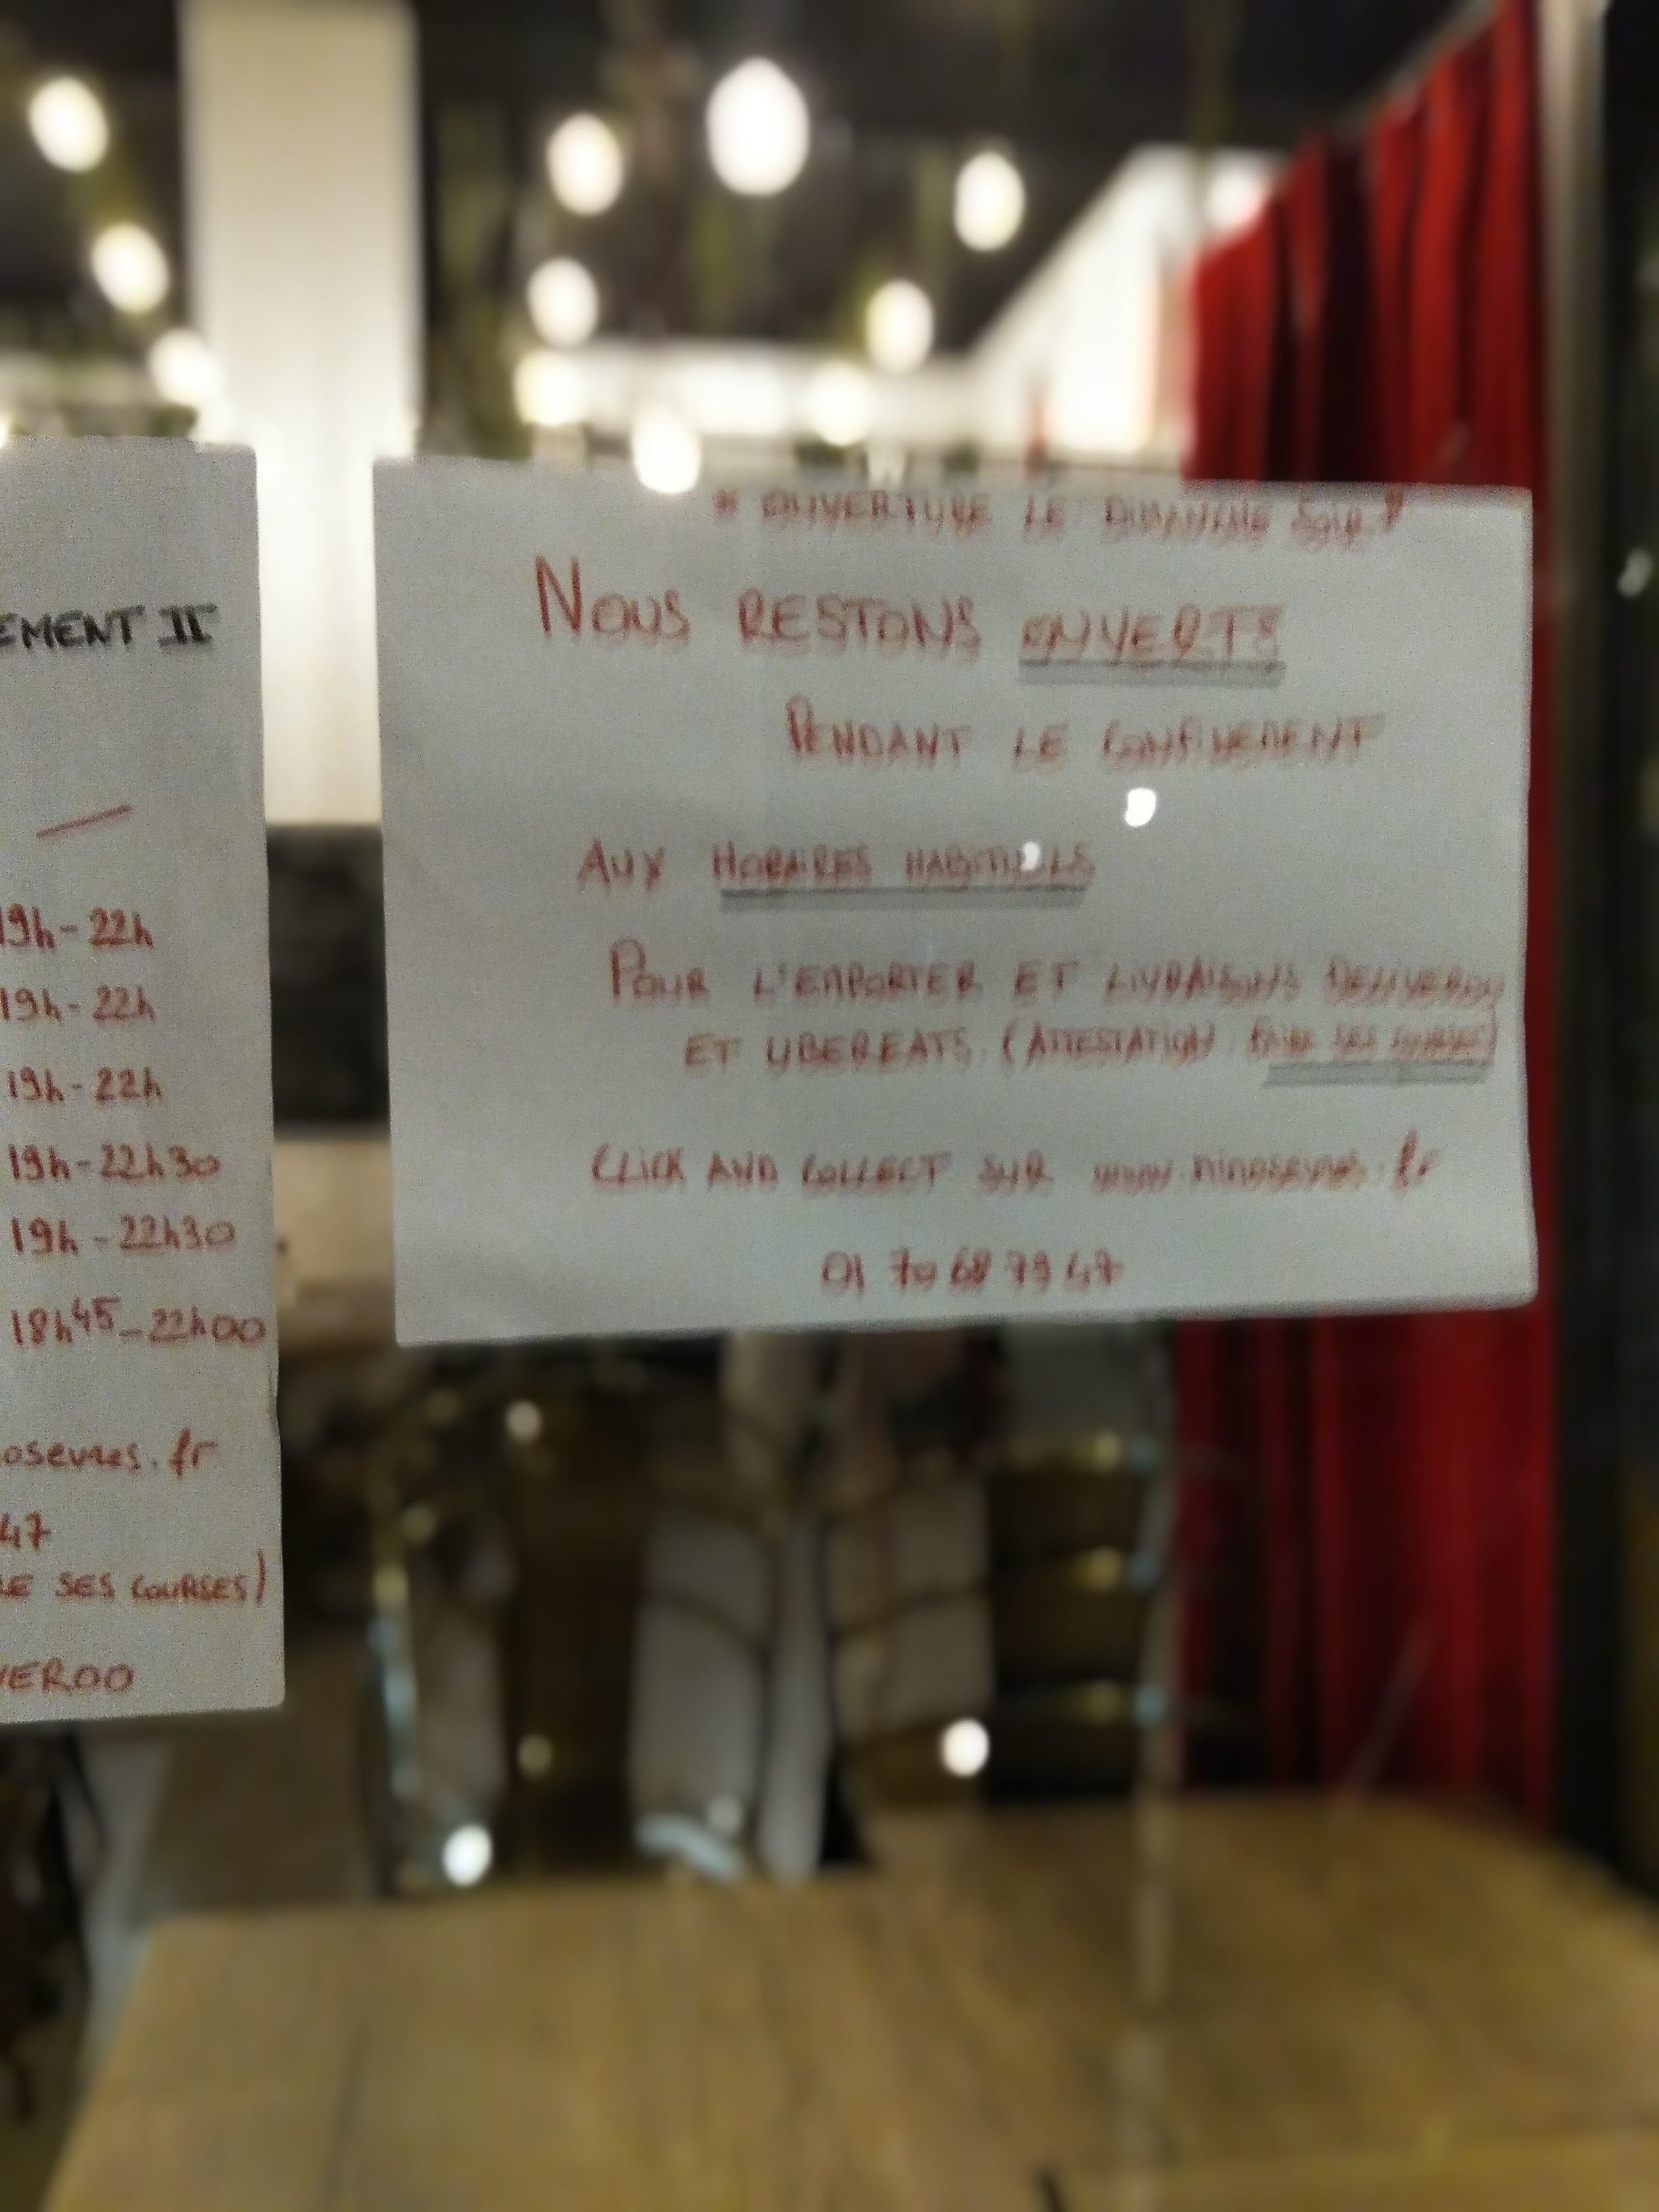 EMENT II
19h-22h
19h-22h
19h-22h
19h-22h30
19h-22h30
18h45-22h00
osevres.fr
47
RE SES COURSES)
VEROO
* OUVERTURE LE DIMANCHE SOIR *
NOUS RESTONS OUVERTS
PENDANT LE CONFINEMENT
AUX HORAIRES HABITUELS
POUR L'EMPORTER ET LIVRAISONS DELIVEROO
ET UBEREATS (ATTESTATION FAIRE SES COURSES)
CLICK AND COLLECT SUR www.ninosevres.fr
01 70 68 79 47